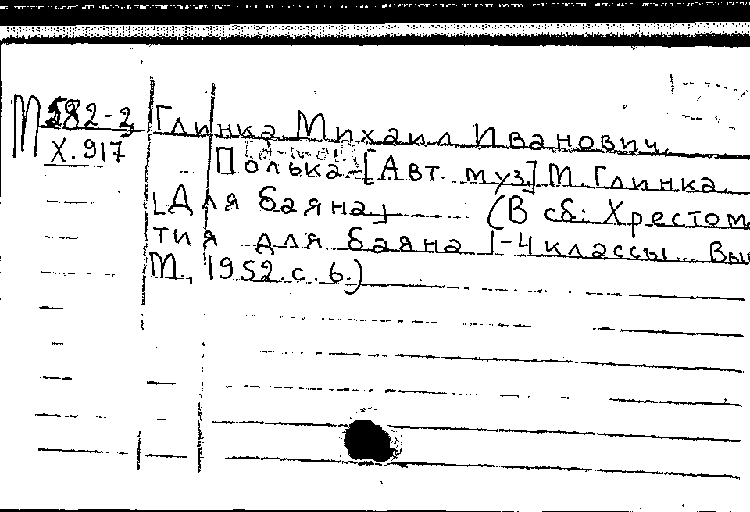 М 582-2
Х.917
Глинка Михаил Иванович.
Полька [Авт. муз.] М. Глинка.
[Для баяна] (В сб: Хрестом
тия для баяна 1-4 классы. Вып
М., 1952. с. 6.)